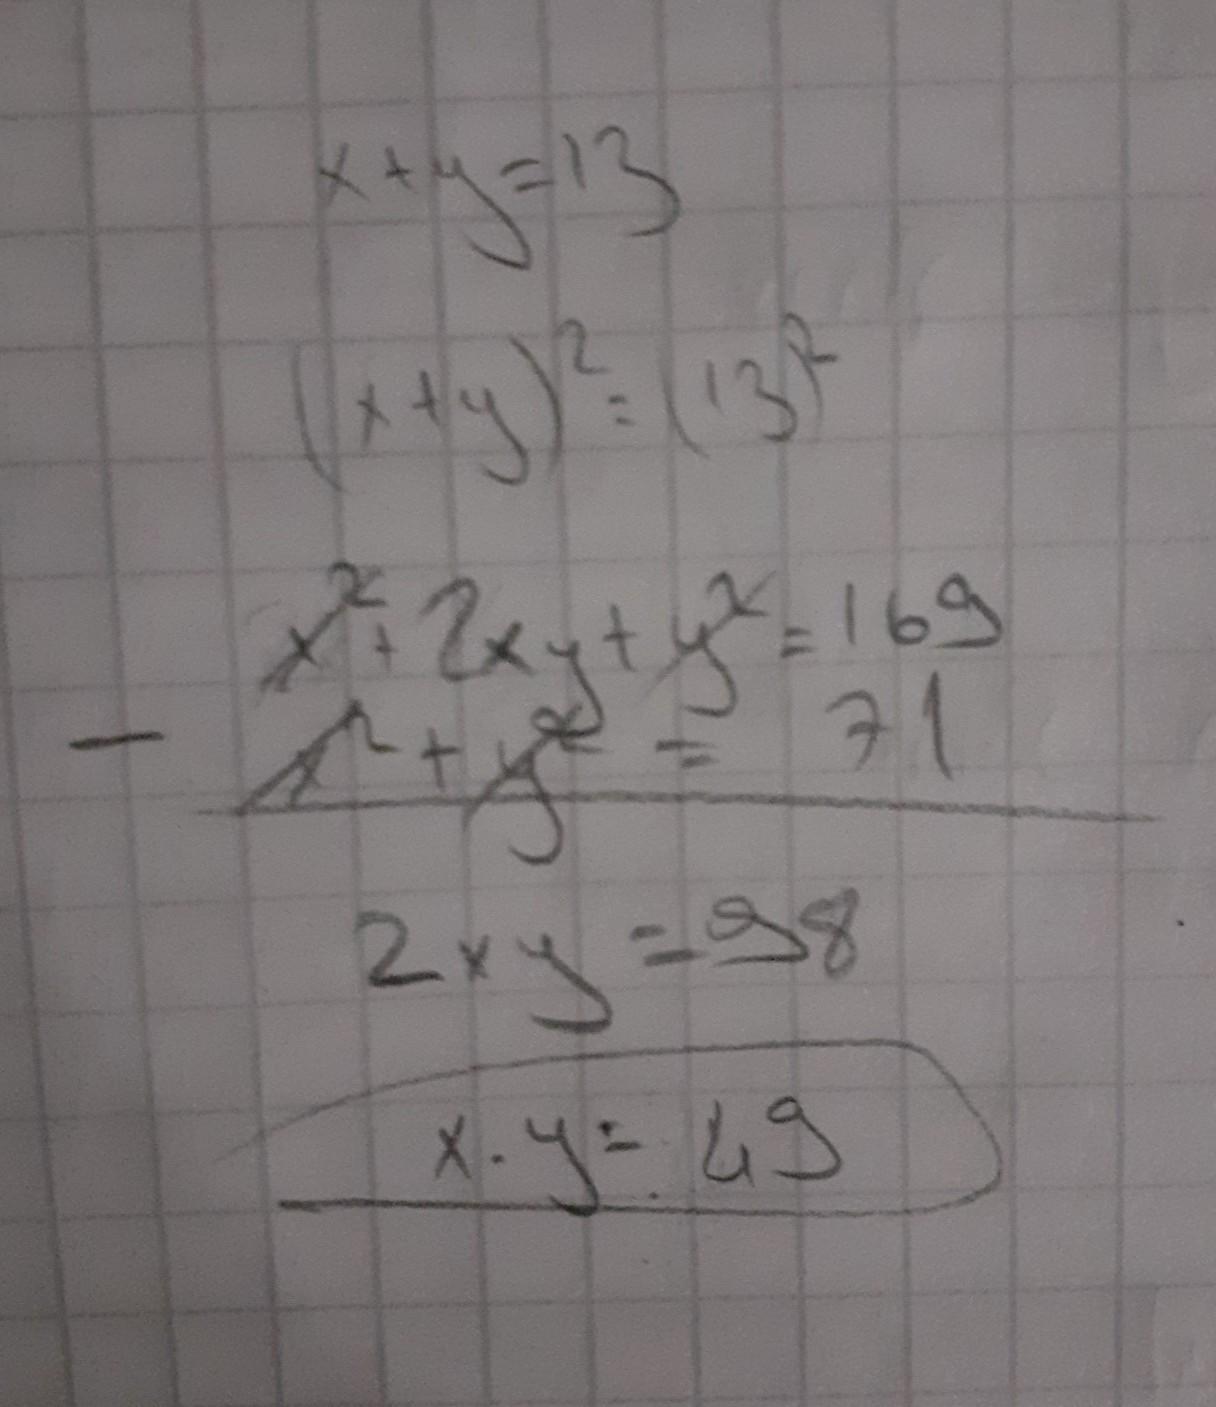 x+y=13
(x+y)²=(13)²
x²+2xy+y²=169
− x²+y² = 71
2xy=98
x.y=49